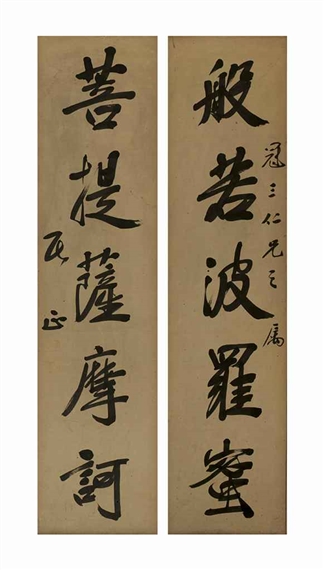 般若波羅蜜
冠三仁兄之屬
菩提薩摩訶
正